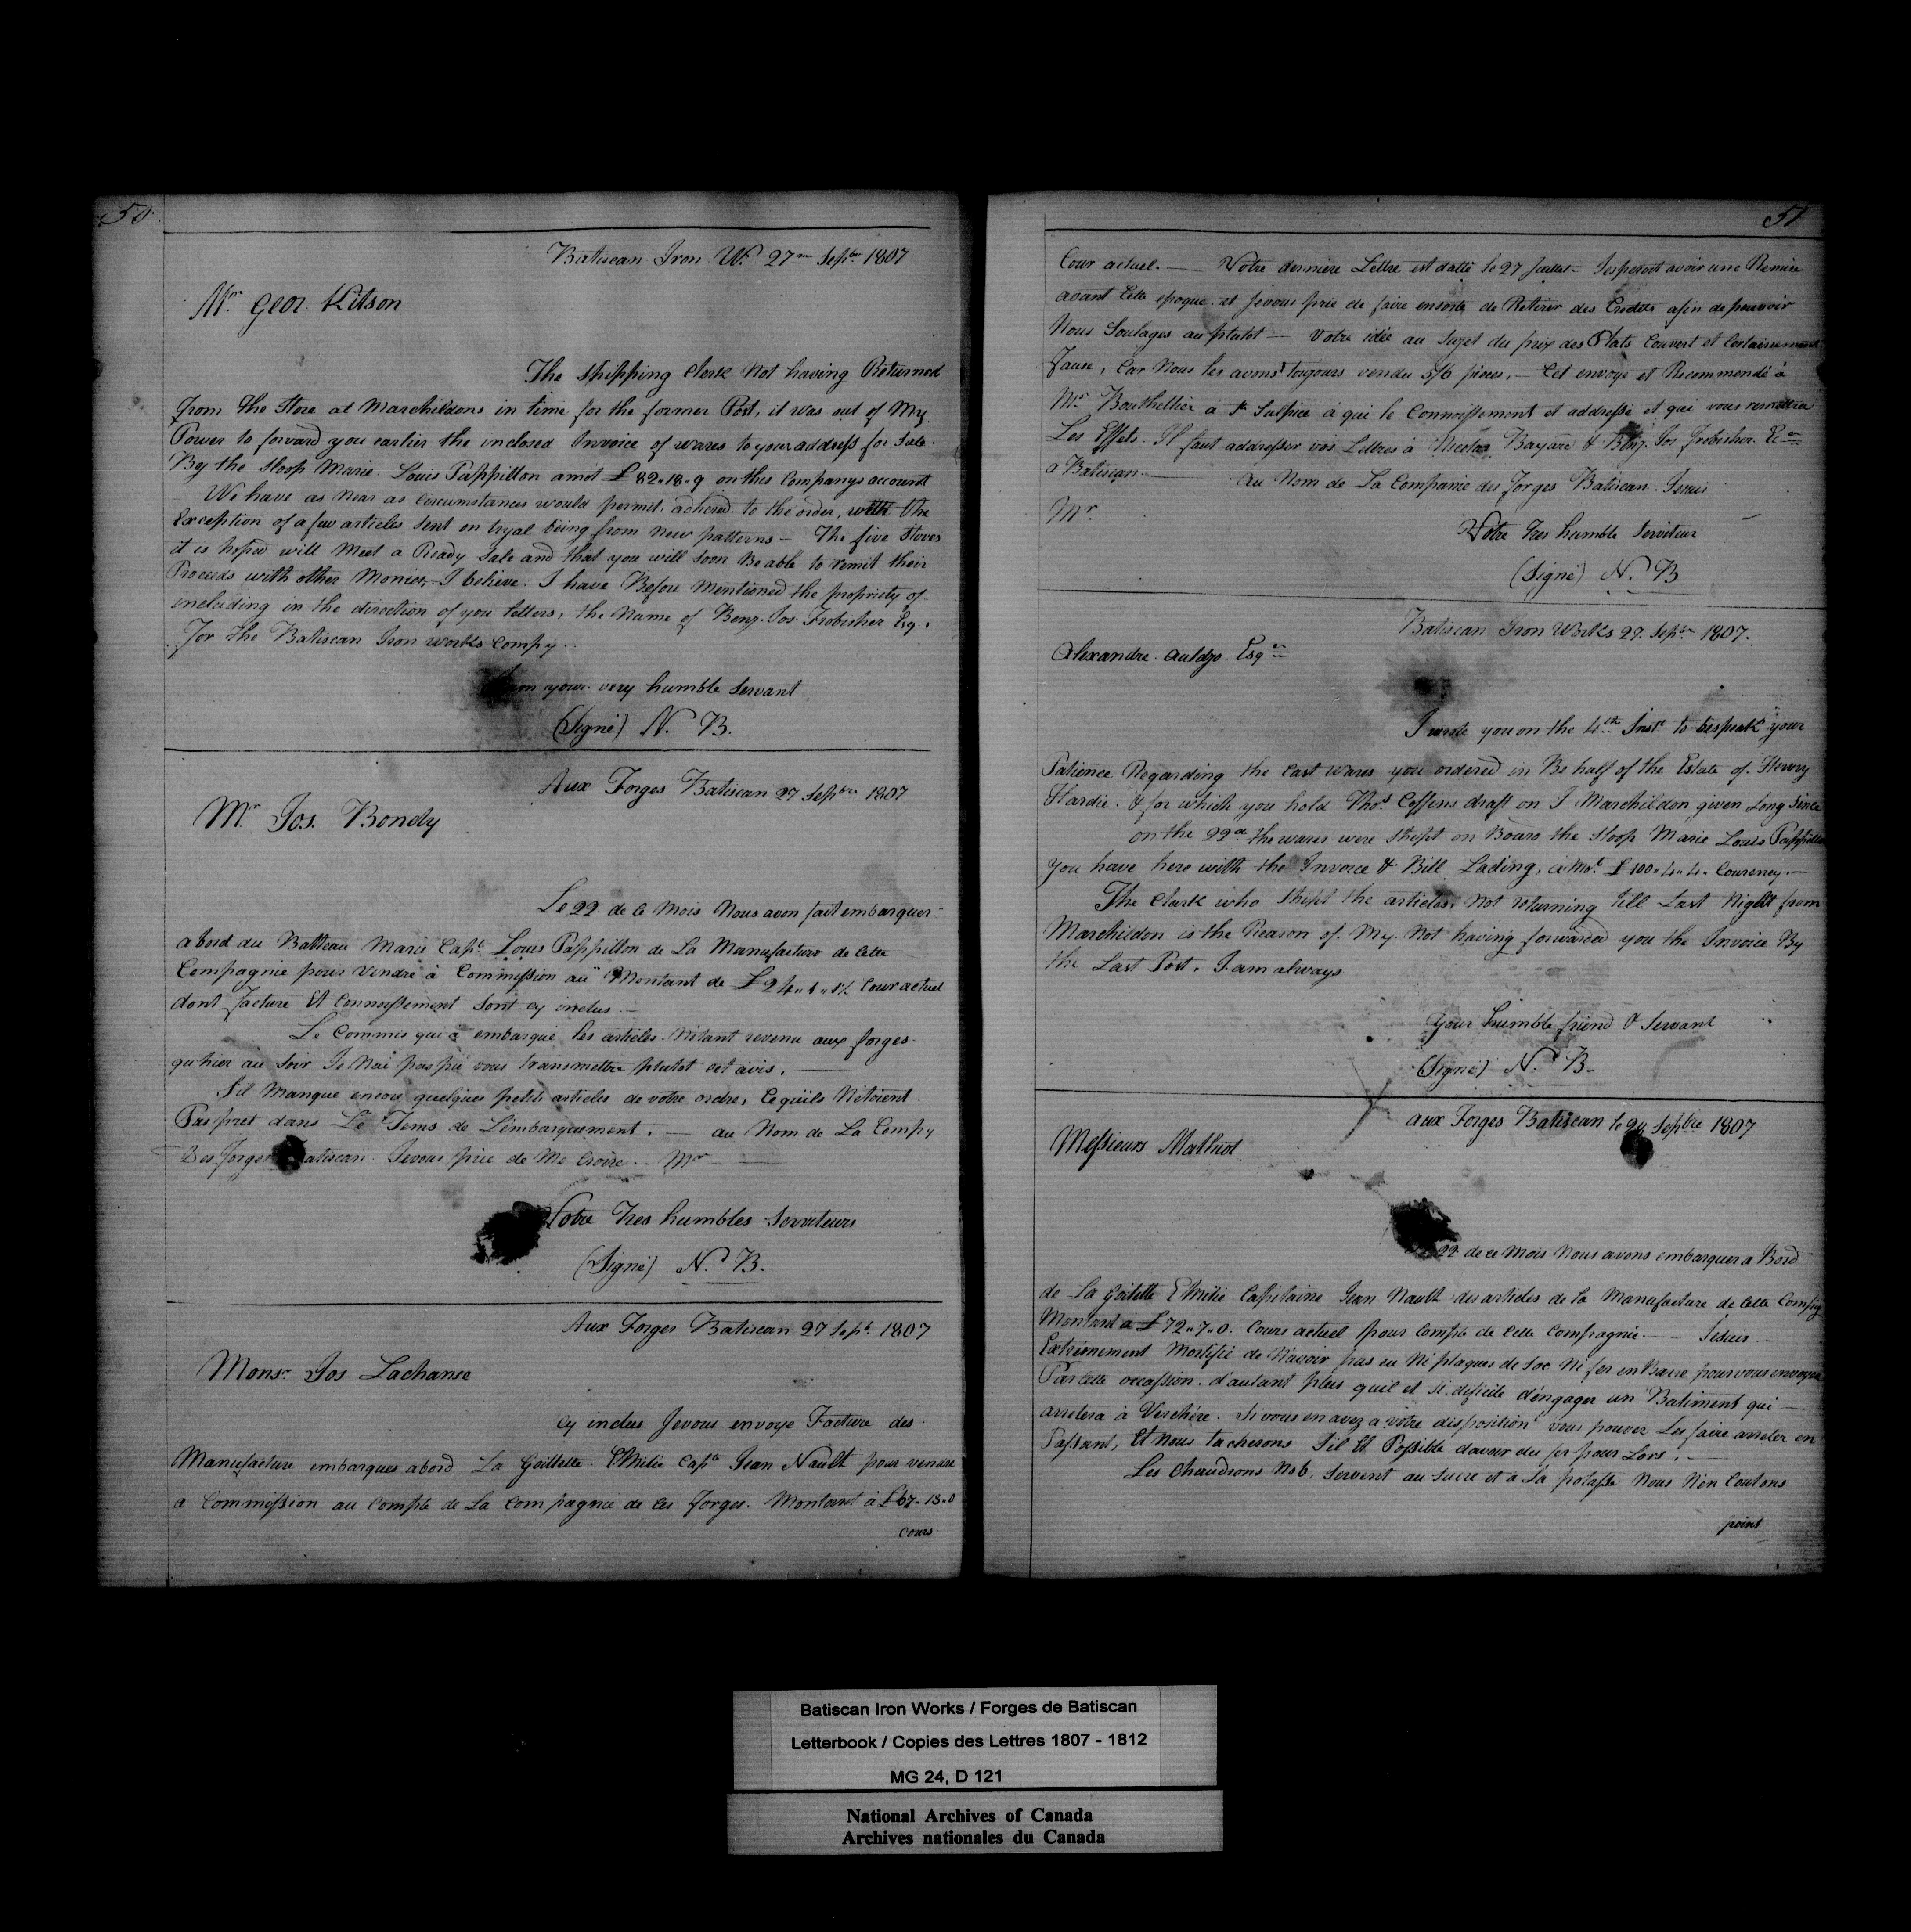 50.
Batiscan Iron W. 27 Sepbr 1807
Mr. Geor. Kitson
The Shipping Clerk Not having Returned
from The Store at Marchildons in time for the former Post, it was out of My
Power to forward you earlier the inclosed Invoice of wares to your address for Sale.
By the Sloop Marie. Louis Pappillon amot £82"18"9 on this Companys account
We have as Near as circumstances would permit, adhered to the order, with the
Exception of a few articles Sent on tryal being from New patterns — The five Stoves
it is hoped will Meet a Ready Sale and that you will Soon Be able to remit their
Proceeds with other Monies, I believe. I have Before Mentioned the propriety of
including in the direction of you letters, the Name of Benj. Jos. Frobisher Esq.
For The Batiscan Iron works Compy..
your very humble Servant
(Signé) N. B.
Aux Forges Batiscan 27 Sepbre 1807
Mr. Jos. Bondy
Le 22 de Ce Mois Nous avon fait embarquer
abord du Batteau Marie Capt. Louis Pappillon de La Manufacture de Cette
Compagnie pour Vendre à Commission au Montant de £24"1" Cour actuel
dont facture Et Connoissement Sont cy inclus. —
Le Commis qui à embarqué les articles. Nétant revenu aux forges.
qu'hier au Soir Je Nai pas pu vous transmettre plutot cet avis. —
Sil Manque encore quelques petits articles de votre ordre, Cequils Nétoient
Pas pret dans Le Tems de Lembarquement. — au Nom de La Compy
Des Forges Batiscan. Jevous prie de Me Croire.. Mr —
Votre Tres humbles Serviteurs
(Signé) N. B.
Aux Forges Batiscan 27 Sept. 1807
Monsr. Jos Lachanse
Cy inclus Jevous envoye Facture des
Manufacture embarques abord La Goillette Emilie Capt. Jean Nault pour vendre
a Commission au Compte de La Compagnie de Ces Forges. Montant à £67"13"0
cours
51
Cour actuel. — Votre derniere Lettre est datté le 27 Juillet — Jesperoit avoir une Remise
avant Cette epoque et jevous prie de faire ensorte de Retirer des Credits afin de pouvoir
Nous Soulages au plutot — Votre idée au Sujet du prix des Plats Couvert et Certainement
Fause, Car Nous les avons toujours vendu 5/6 pieces, — Cet envoye et Recommendé à
Mr. Bouthellier à St. Sulpice à qui le Connoissement et addressé et qui vous remettra
Les Effets. Il faut addresser vos Lettres à Nicolas Bayard & Benj. Jos Frobisher
a Batiscan. — Au Nom de La Companie des Forges Batiscan. Jesuis
Mr.
Votre Tres humble Serviteur
(Signé) N. B
Batiscan Iron Works 27. Sepbr 1807.
Alexandre. Auldjo Esqer
I wrote you on the 4th Inst to bespeak your
Patience Regarding the Cast Wares you ordered in Behalf of the Estate of. Henry
Hardie. & for which you hold Thos Coffins draft on J Marchildon given Long Since
on the 22d the wares were Shipt on Board the Sloop Marie Louis Pappillon
You have here with the Invoice & Bill Lading, amot £100"4"4. Courency. —
The Clark who Shipt the articles, Not returning till Last Night from
Marchildon is the Reason of. My Not having forwarded you the Invoice By
the Last Post. I am always
Your humble friend & Servant
(Signé) N. B.
aux Forges Batiscan le Sepbre 1807
Messieurs Mathiot
22 de ce Mois Nous avons embarquer a Bord
de La Goilette Emilie Capitaine Jean Nault des articles de la Manufacture de Cette Compy
Montant à £72"7"0. Cours actuel pour Compte de Cette Compagnie. — Jesuis
Extrémement Mortifié de N'avoir pas eu Ni plaques de Soc Ni fer en Barre pour vous envoyer
Par Cette occassion. d'autant plus quil et Si dificile d'engager un Batiment qui —
arretera à Verchére. Si vous en avez a vôtre disposition vous pouvez Les faire arreter en
Passant, Et Nous tacherons Sil Et Possible davoir du fer pour Lors. —
Les Chaudrons No 6. Servent au Sucre et à La potasse Nous N'en Coutons
point
Batiscan Iron Works / Forges de Batiscan
Letterbook / Copies des Lettres 1807 - 1812
MG 24, D 121
National Archives of Canada
Archives nationales du Canada